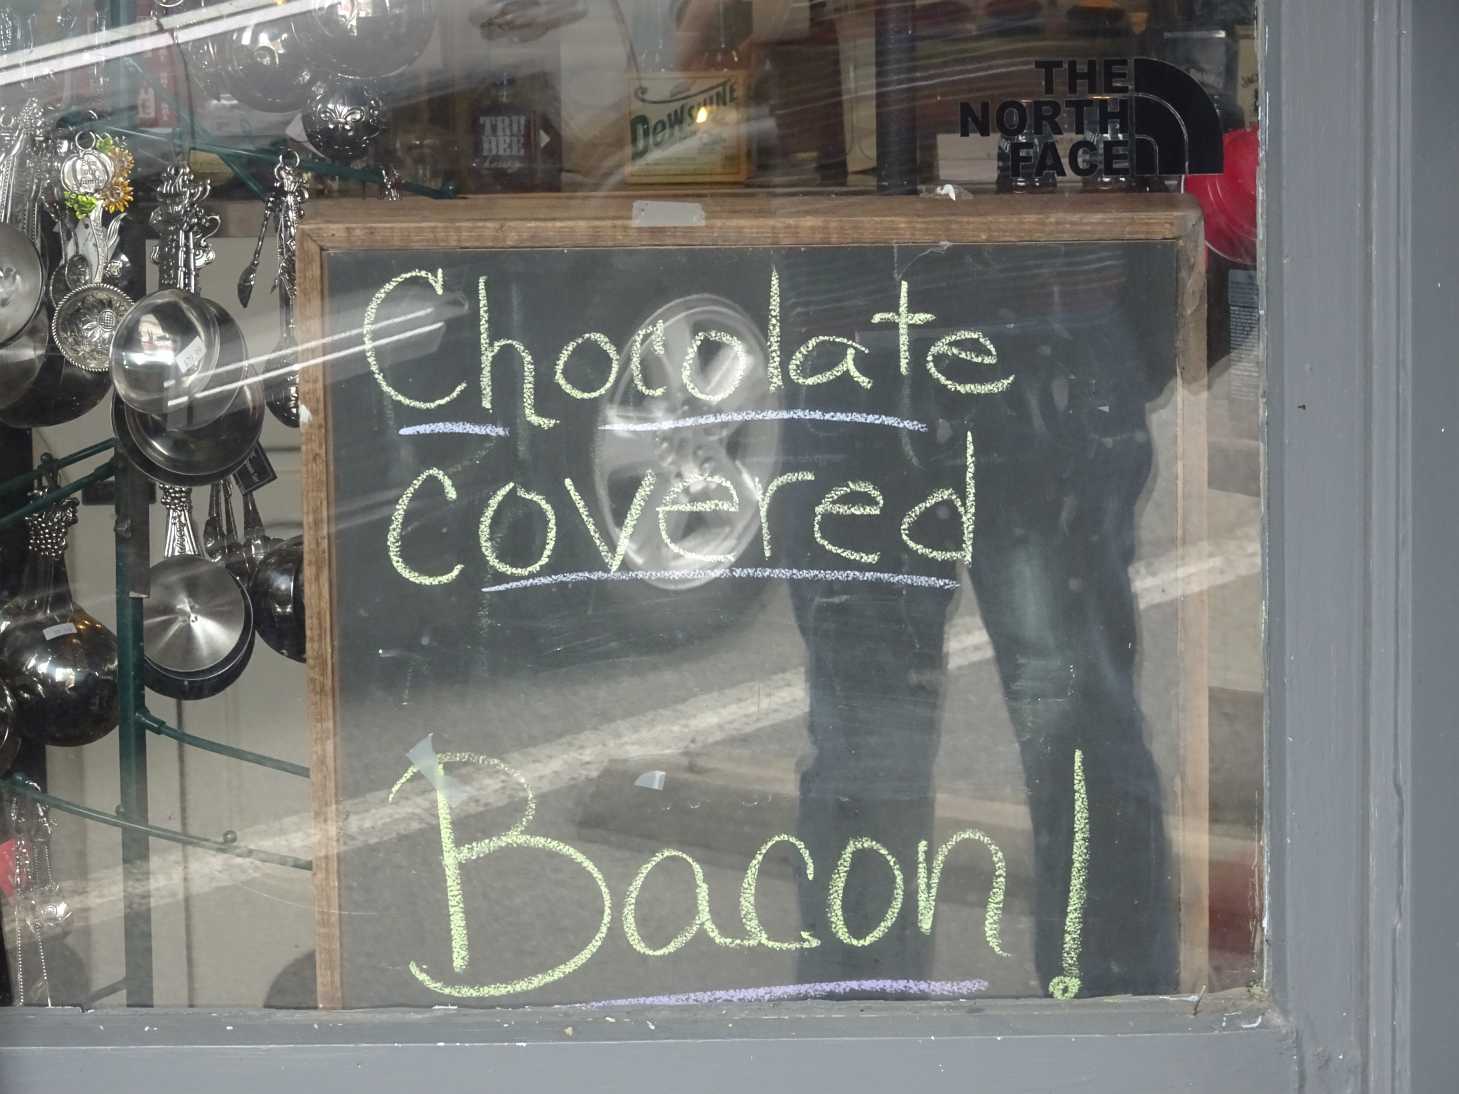 THE
NORTH
FACE
DewShine
TRU
BEE
honey
Chocolate
covered
Bacon!